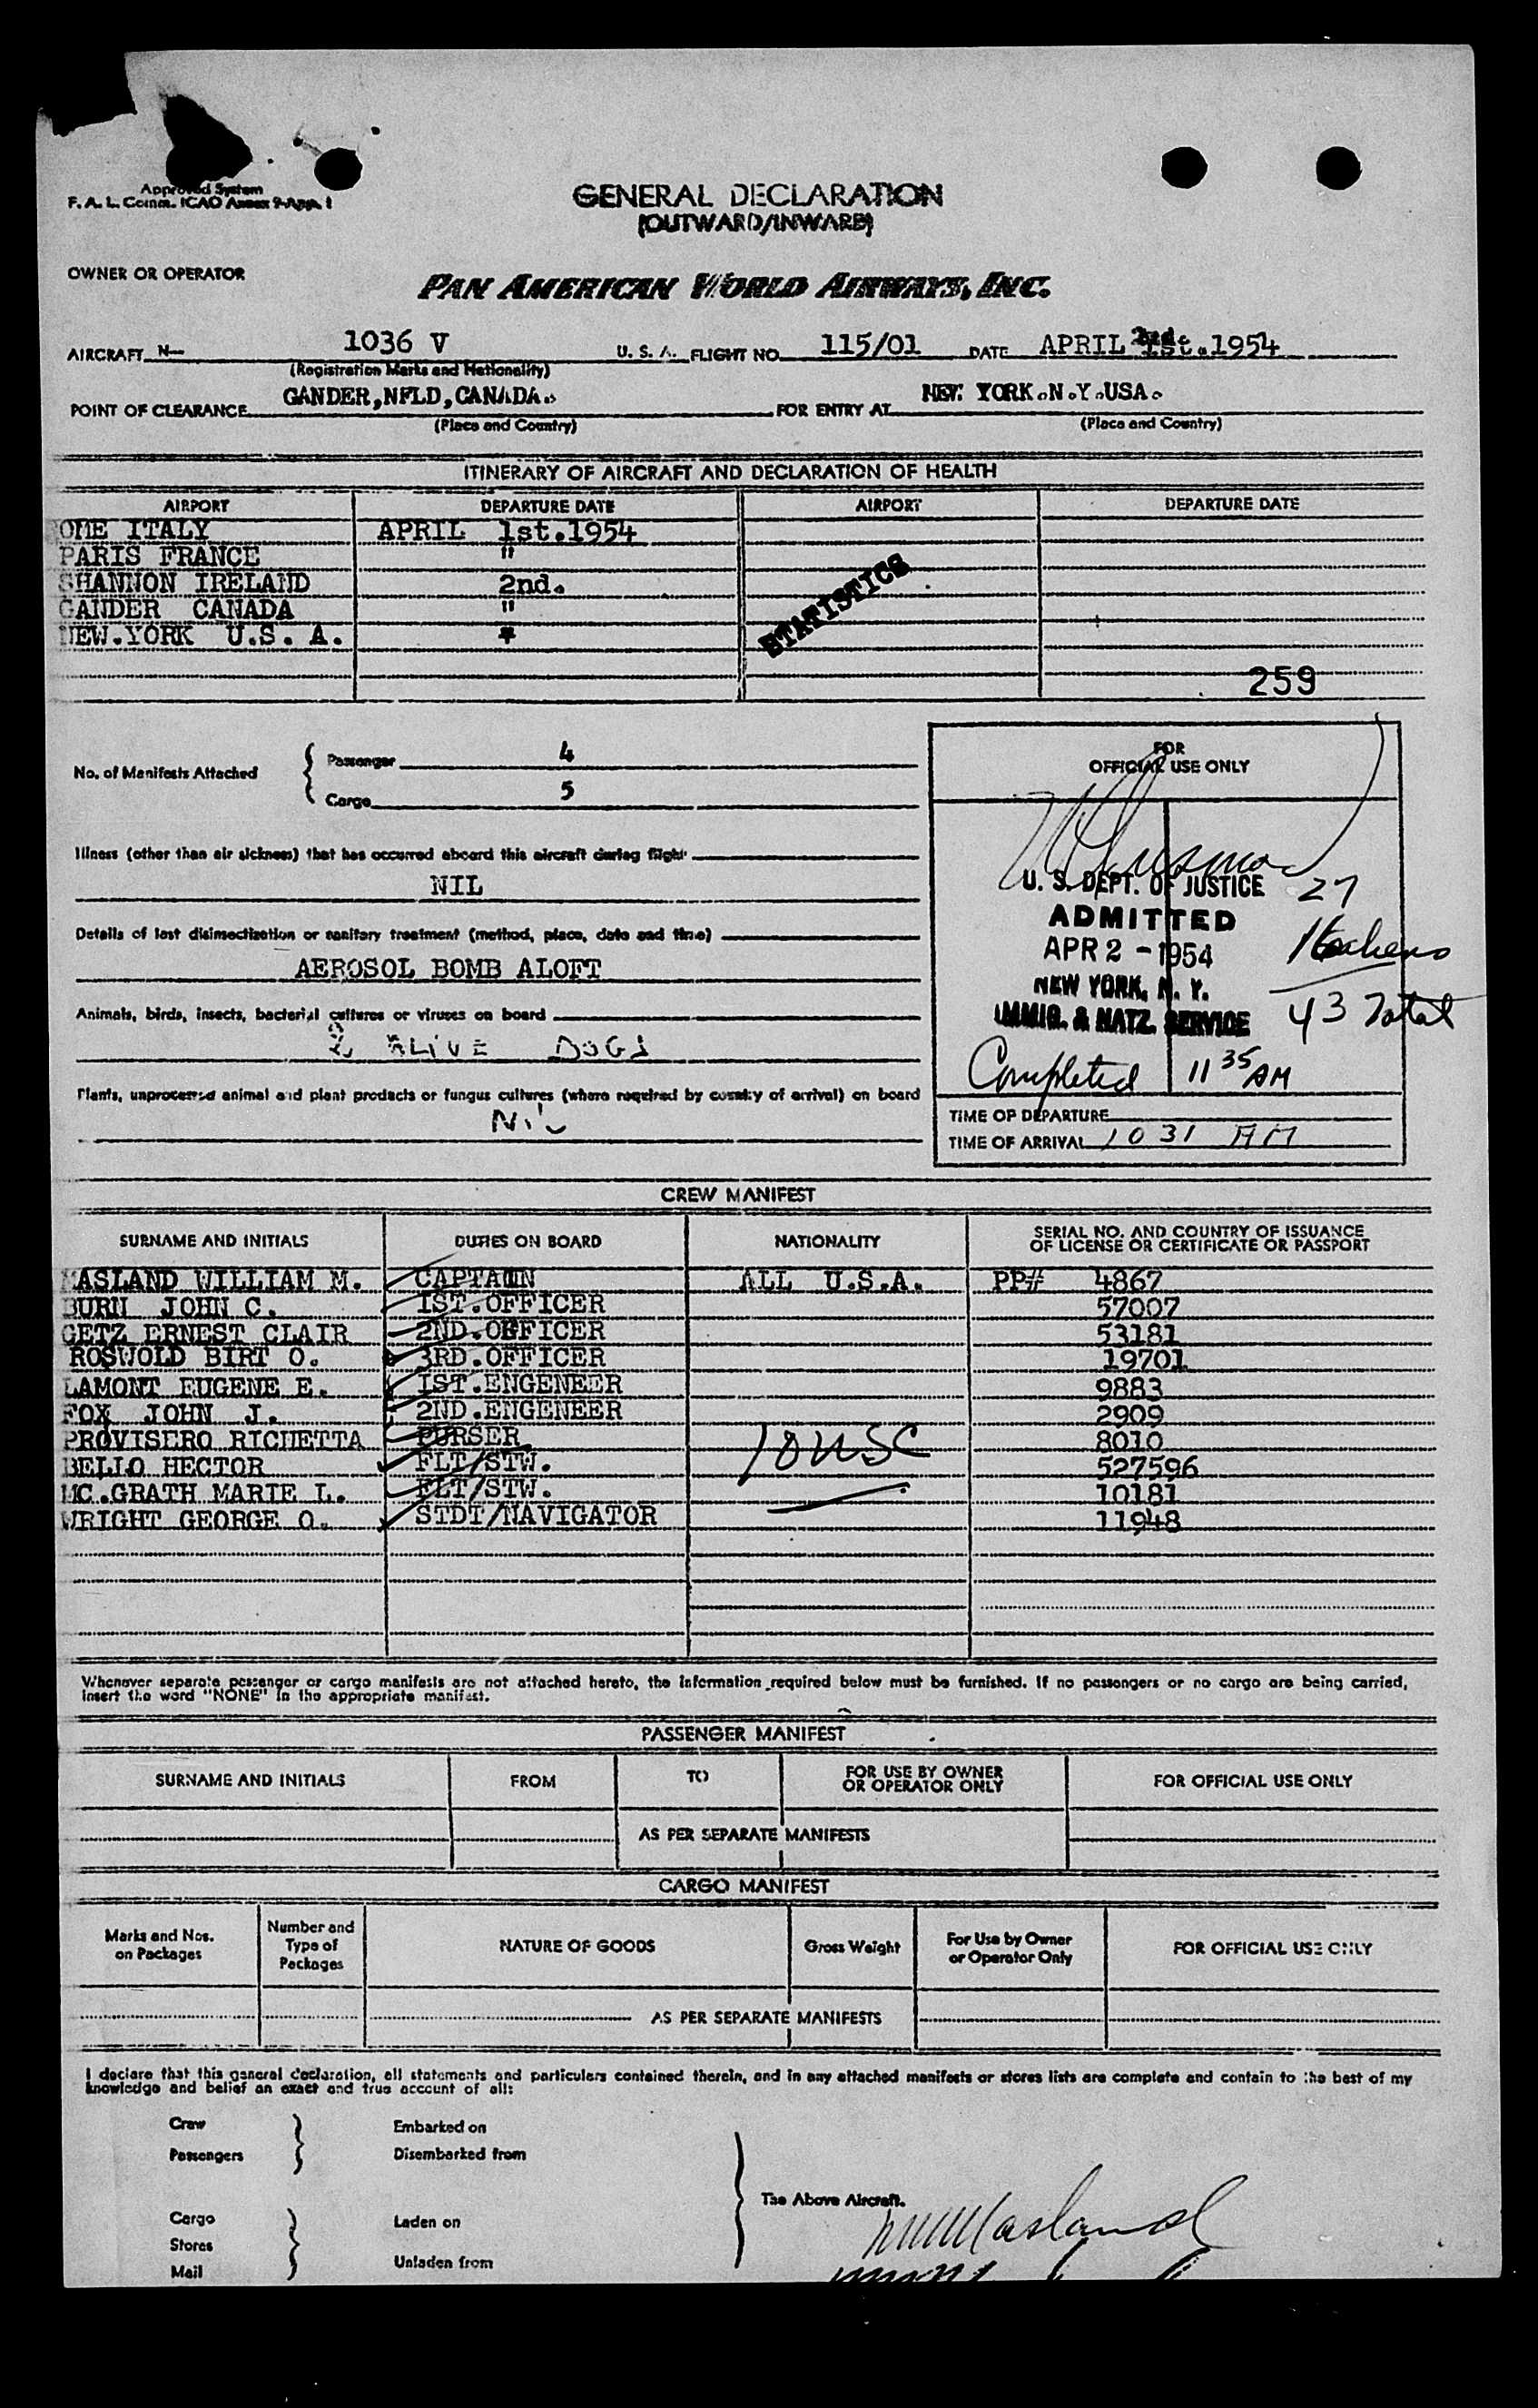 Approved System
F. A. L. Comm. ICAO Annex 9-App. 1
GENERAL DECLARATION
(OUTWARD/INWARD)
OWNER OR OPERATOR
PAN AMERICAN WORLD AIRWAYS, INC.
AIRCRAFT N— 1036 V U. S. A. FLIGHT NO. 115/01 DATE APRIL 1st.1954
(Registration Marks and Nationality)
POINT OF CLEARANCE GANDER,NFLD,CANADA. FOR ENTRY AT NEW. YORK.N.Y.USA.
(Place and Country) (Place and Country)
ITINERARY OF AIRCRAFT AND DECLARATION OF HEALTH
AIRPORT DEPARTURE DATE AIRPORT DEPARTURE DATE
OME ITALY APRIL 1st.1954
PARIS FRANCE "
SHANNON IRELAND 2nd.
GANDER CANADA "
NEW.YORK U.S. A.
STATISTICS
259
No. of Manifests Attached
Passenger 4
Cargo 5
Illness (other than air sickness) that has occurred aboard this aircraft during flight
NIL
Details of last disinsectization or sanitary treatment (method, place, date and time)
AEROSOL BOMB ALOFT
Animals, birds, insects, bacterial cultures or viruses on board
2 ALIVE DOGS
Plants, unprocessed animal and plant products or fungus cultures (where required by country of arrival) on board
NIL
FOR
OFFICIAL USE ONLY
U. S. DEPT. OF JUSTICE 27
ADMITTED
APR 2 - 1954 16 aliens
NEW YORK, N. Y.
IMMIG. & NATZ. SERVICE 43 Total
Completed 11 35 AM
TIME OF DEPARTURE
TIME OF ARRIVAL 10 31 AM
CREW MANIFEST
SURNAME AND INITIALS DUTIES ON BOARD NATIONALITY SERIAL NO. AND COUNTRY OF ISSUANCE
OF LICENSE OR CERTIFICATE OR PASSPORT
MASLAND WILLIAM M. CAPTAIN ALL U.S.A. PP# 4867
BURN JOHN C. IST.OFFICER 57007
GETZ ERNEST CLAIR 2ND.OFFICER 53181
ROSWOLD BIRT O. 3RD.OFFICER 19701
LAMONT EUGENE E. IST.ENGENEER 9883
FOX JOHN J. 2ND.ENGENEER 2909
PROVISERO RICHETTA PURSER 8010
BELLO HECTOR FLT/STW. 527596
MC.GRATH MARIE L. FLT/STW. 10181
WRIGHT GEORGE O. STDT/NAVIGATOR 11948
10 USC
Whenever separate passenger or cargo manifests are not attached hereto, the information required below must be furnished. If no passengers or no cargo are being carried,
insert the word "NONE" in the appropriate manifest.
PASSENGER MANIFEST
SURNAME AND INITIALS FROM TO FOR USE BY OWNER
OR OPERATOR ONLY FOR OFFICIAL USE ONLY
AS PER SEPARATE MANIFESTS
CARGO MANIFEST
Marks and Nos.
on Packages Number and
Type of
Packages NATURE OF GOODS Gross Weight For Use by Owner
or Operator Only FOR OFFICIAL USE ONLY
AS PER SEPARATE MANIFESTS
I declare that this general declaration, all statements and particulars contained therein, and in any attached manifests or stores lists are complete and contain to the best of my
knowledge and belief an exact and true account of all:
Crew Embarked on
Passengers Disembarked from
The Above Aircraft.
Cargo Laden on
Stores
Mail Unladen from
WM Masland